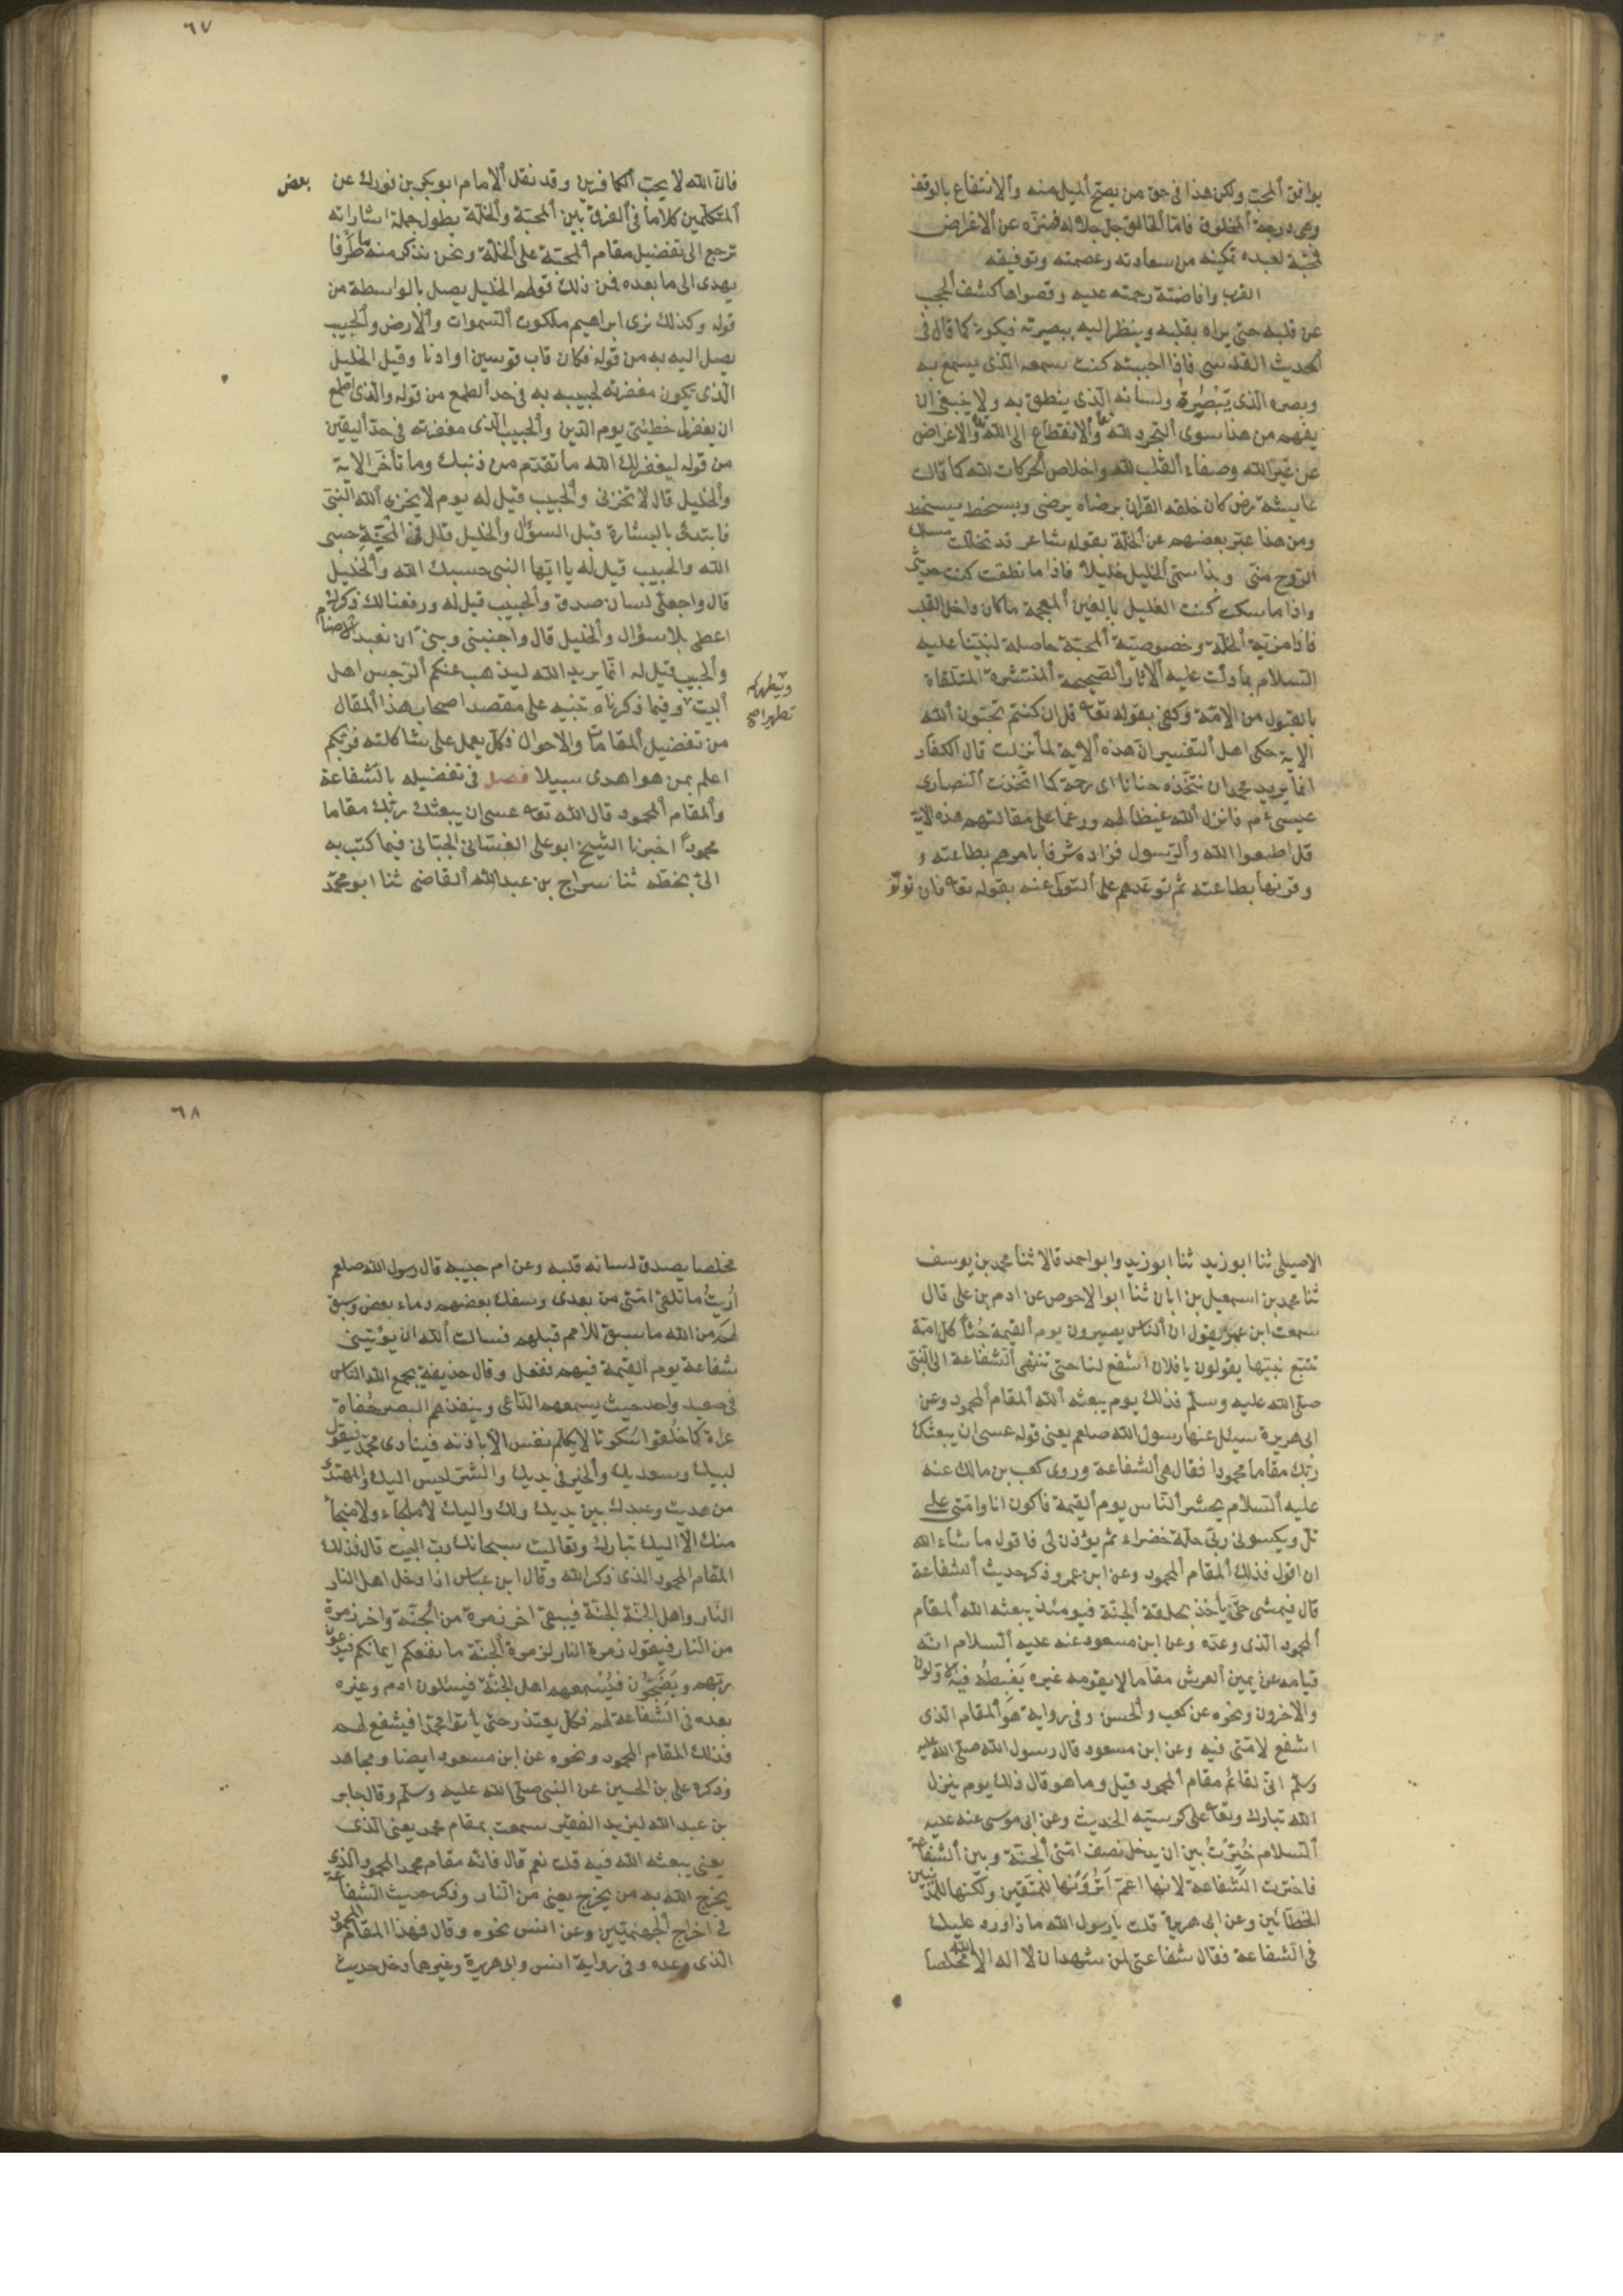 يوافق ألمحب ولكن هذا في حق من يصح ألميل منه وألانتفاع بالوفق
وهي درجة ألمخلوق فامّا ألخالق جل جلاله فمنزّه عن ألاغراض
فمحبّته لعبده تمكينه من سعادته وعصمته وتوفيقه
القرب وافاضته رحمته عليه وقصواها كشف ألحجب
عن قلبه حتى يراه بقلبه وينظر اليه ببصيرته فيكون كما قال في
ألحديث القدسي فاذا احببته كنت سمعه الّذى يسمع به
وبصره الّذى يبصر به ولسانه الّذى ينطق به ولا ينبغى ان
يفهم من هذا سوى ألتجرد لله وألانقطاع الى الله والاعراض
عن غير الله وصفاء القلب لله واخلاص ألحركات لله كما قالت
عايشة رض كان خلقه القران برضاه يرضى وبسخطه يسخط
ومن هذا عبّر بعضهم عن ألخلّة بقوله شاعر قد تخللت مسلك
الرّوح منى وبذا سمّى ألخليل خليلا فاذا ما نطقت كنت حديثى
واذا ما سكت كنت الغليل بالغين ألمعجمة ما كان داخل القلب
فاذا مزيّة ألخلّة وخصوصيّة ألمحبّة حاصلة لنبيّنا عليه
السّلام بما دلّت عليه ألاثار ألصّحيحة ألمنتشرة المتلقاة
بالقبول من الامّة وكفى بقوله تعا قل ان كنتم تحبّون ألله
الاية حكى اهل ألتفسير انّ هذه ألاية لمّا نزلت قال الكفار
انما يريد محمد ان نتّخذه حنانا اى رحمة كما اتّخذت ألنصارى
عيسىء م فانزل ألله غيظا لهم ورغما على مقالتهم هذه لاية
قل اطيعوا الله وألرّسول فزاده شرفا بامرهم بطاعته و
وقرنها بطاعته ثم توعّدهم على ألتولى عنه بقوله تعا فان تولّو
٦٧
فانّ الله لا يحبّ ألكافرين وقد نقل ألامام ابو بكر بن فورك عن بعض
ألمتكلمين كلاما في ألفرق بين ألمحبّة وألخلّة يطول جملة اشاراته
ترجع الى تفضيل مقام ألمحبّة على ألخلّة ونحن نذكر منه ما طرفا
يهدى الى ما بعده فمن ذلك قولهم الخليل يصل بالواسطة من
قوله وكذلك نرى ابراهيم ملكوت ألسّموات وألارض وألحبيب
يصل اليه به من قوله فكان قاب قوسين او ادنا وقيل الخليل
الّذى تكون مغفرته لحبيبه به في حد ألطمع من قوله والّذى اطمع
ان يغفر لى خطيئتى يوم الدّين وألحبيب ألّذى مغفرته في حدّ أليقين
من قوله ليغفر لك الله ما تقدّم من ذنبك وما تأخر الاية
وألخليل قال لا تخزنى وألحبيب قيل له يوم لا يخزى ألله النبىّ
فابتدئ بالبشارة قبل السؤال وألخليل قال في المحنة حسبى
الله والحبيب قيل له يا ايّها النبى حسبك الله وألخليل
قال واجعل لى لسان صدق وألحبيب قيل له ورفعنا لك ذكرك
اعطى بلا سؤال وألخليل قال واجنبنى وبنىّ ان نعبد الاصنام
وألحبيب قيل له انّما يريد الله ليذهب عنكم ألرّجس اهل
ألبيت وفيما ذكرناه تنبيه على مقصد اصحاب هذا ألمقال
ويطهركم
تطهيرا صح
من تفضيل ألمقامات والاحوال فكلّ يعمل على شاكلته فربّكم
اعلم بمن هو اهدى سبيلا فصل في تفضيله بالشّفاعة
وألمقام ألمحمود قال الله تعا عسى ان يبعثك ربّك مقاما
محموداً اخبرنا الشّيخ ابو على الغسّانى الجيّانى فيما كتب به
الىّ بخطّه ثنا سراج بن عبدالله ألقاضى ثنا ابو محمّد
الاصيلى ثنا ابو زيد ثنا ابو زيد وابو احمد قالا ثنا محمد بن يوسف
ثنا محمد بن اسمعيل بن ابان ثنا ابو الاحوص عن ادم بن على قال
سمعت ابن عمر يقول ان ألناس يصيرون يوم ألقيمة جُثًا كل امّة
تتبع نبيّها يقولون يا فلان اشفع لنا حتى تنتهى ألشّفاعة الى النبّى
صلّى الله عليه وسلّم فذلك يوم يبعثه ألله ألمقام ألمحمود وعن
ابى هريرة سئل عنها رسول الله صلعم يعنى قوله عسى ان يبعثك
ربّك مقاما محمودا فقال هى ألشفاعة وروى كعب بن مالك عنه
عليه ألسّلام يحشر ألنّاس يوم ألقيمة فاكون انا وامّتى على
تل ويكسونى ربّى حلّة خضراء ثم يؤذن لى فاقول ما شاء الله
ان اقول فذلك ألمقام ألمحمود وعن ابن عمر وذكر حديث ألشفاعة
قال فيمشى حتى يأخذ بحلقة ألجنّة فيومئذ يبعثه الله ألمقام
ألمحمود الّذى وعده وعن ابن مسعود عنه عليه ألسّلام انّه
قيامه عن يمين ألعرش مقاما لا يقومه غيره يَغْبِطُه فيه الاوّلون
والاخرون ونحوه عن كعب وألحسن وفى رواية هو ألمقام الذى
اشفع لامّتى فيه وعن ابن مسعود قال رسول الله صلّى الله عليه
وسلّم انّى لقائم مقام ألمحمود قيل وما هو قال ذلك يوم ينزل
الله تبارك وتعا على كرسيّه الحديث وعن ابى موسى عنه عليه
ألسّلام خُيّرتُ بين ان يدخل نصف امّتى ألجنّة وبين ألشفاعة
فاخترت الشّفاعة لانها اعمّ اَتُرَوْنَها للمتّقين ولكنّها للمذنبين
الخطّائين وعن ابى هريرة قلت يا رسول الله ما ذا ورد عليك
في الشّفاعة فقال شفاعتى لمن شهد ان لا اله الا الله مخلصا
٦٨
مخلصا يصدق لسانه قلبه وعن ام حبيبه قال رسول الله صلعم
اُرِيتُ ما تلقى امّتى من بعدى وسفك بعضهم دماء بعض وسبق
لهم من الله ما سبق للامم قبلهم فسالت ألله ان يؤتينى
شفاعة يوم ألقيمة فيهم ففعل وقال حذيفة يجمع الله الناس
في صعيد واحد حيث يسمعهم الدّاعى وينفذهم البصر حُفاة
عراة كما خُلقوا سُكوتا لا تكلم نفس الّا باذنه فينادى محمّد فيقول
لبيك وسعديك وألخير في يديك والشّر ليس اليك والمهتدى
من هديت وعبدك بين يديك ولك واليك لا ملجاء ولا منجأ
منك الّا اليك تبارك وتعاليت سبحانك ربّ البيت قال فذلك
المقام المحمود الذى ذكر الله وقال ابن عباس اذا دخل اهل النار
النّار واهل الجنّة الجنّة فيبقى اخر زمرة من ألجنّة واخر زمرة
من النار فيقول زمرة النار لزمرة ألجنّة ما نفعكم ايمانكم فيدعون
ربّهم ويَضِجُّون فيُسْمعهم اهل الجنّة فيسئلون ادم وغيره
بعده في الشّفاعة لهم فكلّ يعتذر حتى يأتوا محمّدا فيشفع لهم
فذلك المقام المحمود ونحوه عن ابن مسعود ايضا ومجاهد
وذكره على بن الحسين عن النبى صلّى الله عليه وسلّم وقال جابر
بن عبد الله ليزيد الفقير سمعت بمقام محمد يعنى الّذى
يعنى يبعثه الله فيه قلت نعم قال فانّه مقام محمد المحمود الّذى
يخرج الله به من يخرج يعنى من النّار وذكر حديث الشّفاعة
في اخراج ألجهنّميّين وعن انس نحوه وقال فهذا المقام المحمود
الّذى وعده وفى رواية انس وابى هريرة وغيرهما دخل حديث